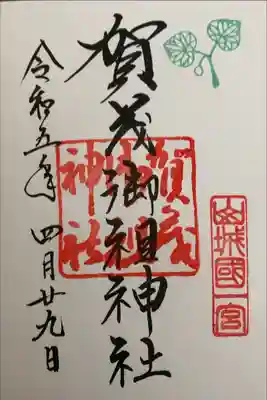 山城國一宮
賀茂御祖神社
賀茂御祖神社
令和五年 四月廿九日